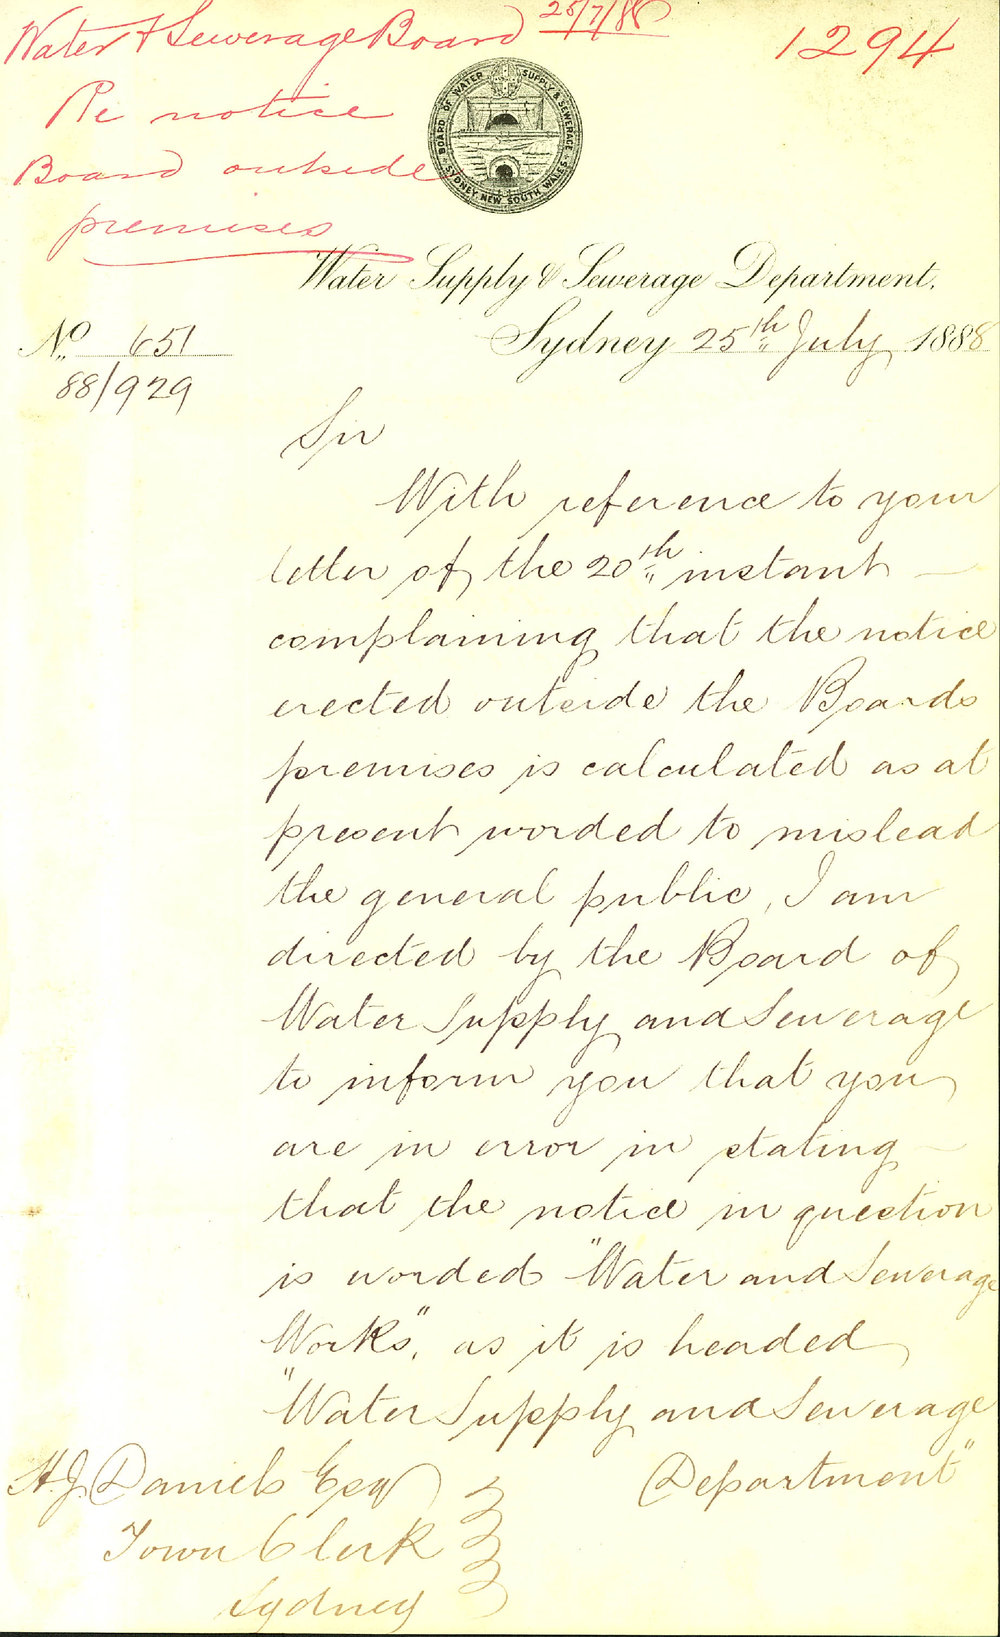 Water & Sewerage Board 25/7/88
1294
Re notice
Board outside
premises
BOARD OF WATER SUPPLY & SEWERAGE
SYDNEY, NEW SOUTH WALES
Water Supply & Sewerage Department.
No. 651
Sydney 25th July 1888
88/929
Sir
With reference to your
letter of the 20th instant
complaining that the notice
erected outside the Boards
premises is calculated as at
present worded to mislead
the general public, I am
directed by the Board of
Water Supply and Sewerage
to inform you that you
are in error in stating
that the notice in question
is worded "Water and Sewerage
Works", as it is headed
"Water Supply and Sewerage
Department"
H.J. Daniels Esq
Town Clerk
Sydney